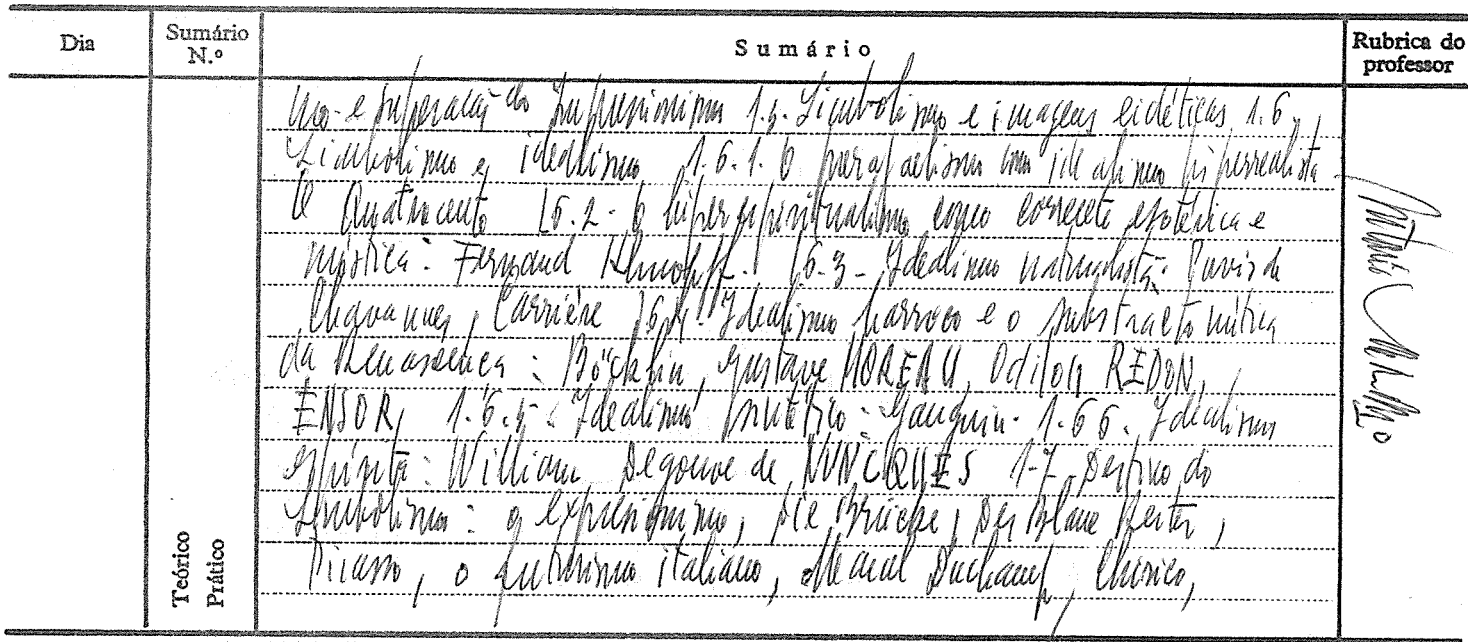 Dia
Sumário N.º
Sumário
Rubrica do professor
e superação do Impressionismo 1.5. Simbolismo e imagens eidéticas 1.6
Simbolismo e idealismo 1.6.1. O prerafaelismo como idealismo hiperrealista
O Quattrocento 1.6.2 - O hiperespiritualismo como corrente esotérica e
mística: Fernand Khnopff. 1.6.3 - Idealismo naturalista: Puvis de
Chavannes, Carrière 1.6.4. Idealismo barroco e o substracto mítico
da Renascença: Böcklin, Gustave MOREAU, Odilon REDON,
ENSOR, 1.6.5 - Idealismo sintético: Gauguin. 1.6 6. Idealismo
espírita: William Degouve de NUNCQUES 1-7 Destino do
Simbolismo: o expressionismo, Die Brücke, Der Blaue Reiter,
Picasso, o futurismo italiano, Marcel Duchamp, Chirico,
Teórico
Prático